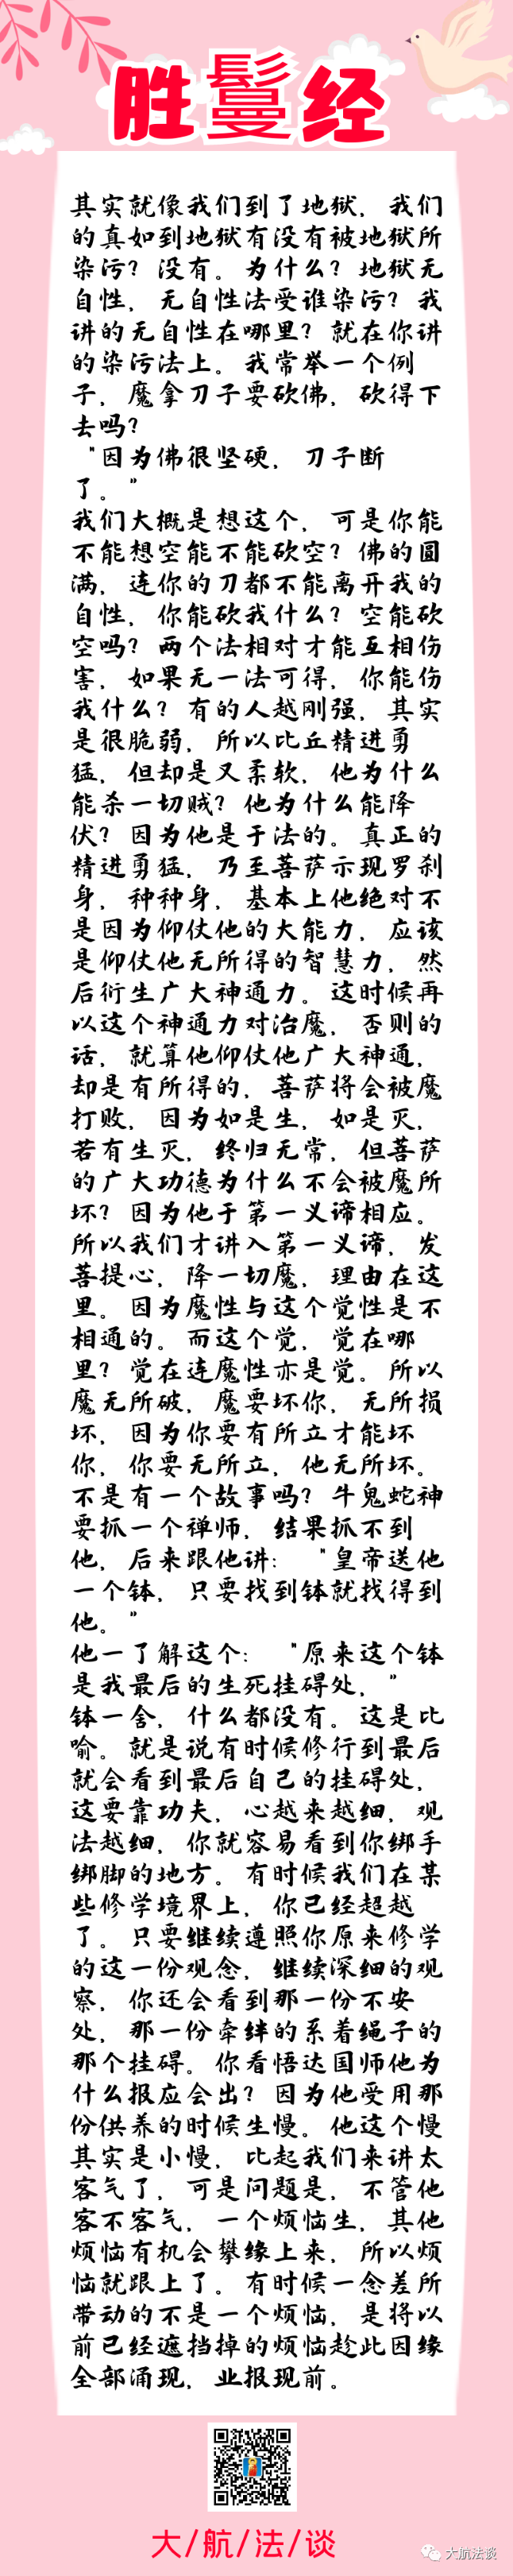 胜鬘经
其实就像我们到了地狱，我们
的真如到地狱有没有被地狱所
染污？没有。为什么？地狱无
自性，无自性法受谁染污？我
讲的无自性在哪里？就在你讲
的染污法上。我常举一个例
子，魔拿刀子要砍佛，砍得下
去吗？
“因为佛很坚硬，刀子断
了。”
我们大概是想这个，可是你能
不能想空能不能砍空？佛的圆
满，连你的刀都不能离开我的
自性，你能砍我什么？空能砍
空吗？两个法相对才能互相伤
害，如果无一法可得，你能伤
我什么？有的人越刚强，其实
是很脆弱，所以比丘精进勇
猛，但却是又柔软，他为什么
能杀一切贼？他为什么能降
伏？因为他是于法的。真正的
精进勇猛，乃至菩萨示现罗刹
身，种种身，基本上他绝对不
是因为仰仗他的大能力，应该
是仰仗他无所得的智慧力，然
后衍生广大神通力。这时候再
以这个神通力对治魔，否则的
话，就算他仰仗他广大神通，
却是有所得的，菩萨将会被魔
打败，因为如是生，如是灭，
若有生灭，终归无常，但菩萨
的广大功德为什么不会被魔所
坏？因为他于第一义谛相应。
所以我们才讲入第一义谛，发
菩提心，降一切魔，理由在这
里。因为魔性与这个觉性是不
相通的。而这个觉，觉在哪
里？觉在连魔性亦是觉。所以
魔无所破，魔要坏你，无所损
坏，因为你要有所立才能坏
你，你要无所立，他无所坏。
不是有一个故事吗？牛鬼蛇神
要抓一个禅师，结果抓不到
他，后来跟他讲：“皇帝送他
一个钵，只要找到钵就找得到
他。”
他一了解这个：“原来这个钵
是我最后的生死挂碍处，”
钵一舍，什么都没有。这是比
喻。就是说有时候修行到最后
就会看到最后自己的挂碍处，
这要靠功夫，心越来越细，观
法越细，你就容易看到你绑手
绑脚的地方。有时候我们在某
些修学境界上，你已经超越
了。只要继续遵照你原来修学
的这一份观念，继续深细的观
察，你还会看到那一份不安
处，那一份牵绊的系着绳子的
那个挂碍。你看悟达国师他为
什么报应会出？因为他受用那
份供养的时候生慢。他这个慢
其实是小慢，比起我们来讲太
客气了，可是问题是，不管他
客不客气，一个烦恼生，其他
烦恼有机会攀缘上来，所以烦
恼就跟上了。有时候一念差所
带动的不是一个烦恼，是将以
前已经遮挡掉的烦恼趁此因缘
全部涌现，业报现前。
大/航/法/谈
大航法谈